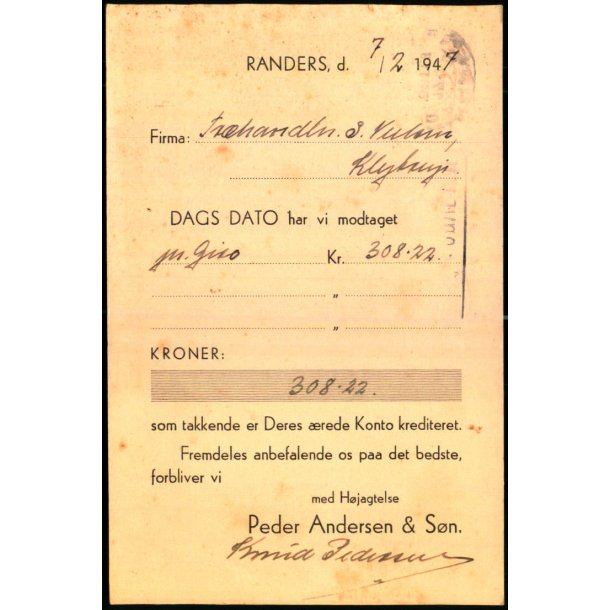 RANDERS, d. 7/2 1947
Firma: Træhandler
DAGS DATO har vi modtaget
pr. Giro Kr. 308.22.
"
"
KRONER:
308.22.
som takkende er Deres ærede Konto krediteret.
Fremdeles anbefalende os paa det bedste,
forbliver vi
med Højagtelse
Peder Andersen & Søn.
Knud Pedersen